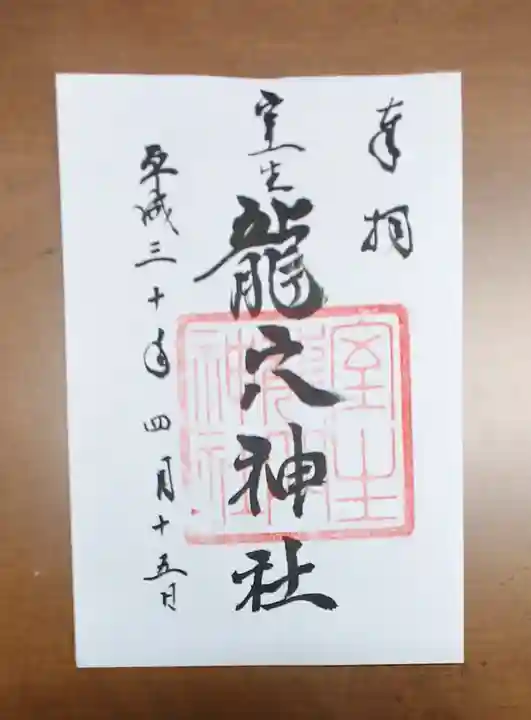 奉拝
室生
龍穴神社
平成三十年四月十五日
室生
龍穴
神社